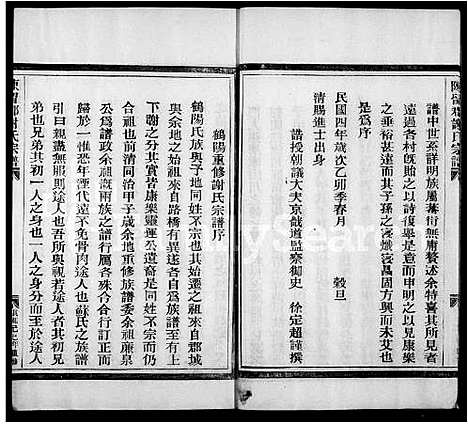 陳留郡謝氏宗譜
譜中世系詳明族屬蕃衍無庸贅述余特喜其所見者
遠過者各村毀貽之以詩復舉是意而申明之以見康樂
之垂裕甚遠而其子孫之克熾克昌固方興而未艾也
是為序
民國四年歲次乙卯季春月 穀旦
清賜進士出身
誥授朝議大夫京畿道監察御史 徐定超謹撰
鶴陽重修謝氏宗譜序
鶴陽氏族與予地同姓不宗也其始遷之祖來自郡城
與余地之始祖來自路橋有異遂各自為族譜至有上
下謝之分其實皆康樂靈運公遺裔是同姓不宗而仍
同宗也先是同治甲子歲余地重修族譜委余祖廉泉
公與績政余祖兩族之譜行屬各殊合行訂正而
歸於一惟恐年湮代遠不免骨肉途人也蘇氏之族譜
引曰親盡無服則途人也吾所與視若途人者其初兄
弟也兄弟其初一人之身也一人之身分而至於途人
陳留郡謝氏宗譜